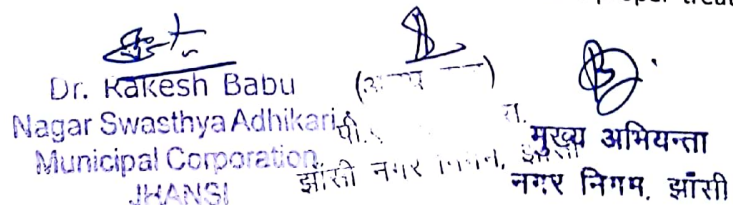 proper treat
Dr. Rakesh Babu
Nagar Swasthya Adhikari
Municipal Corporation
JHANSI
झाँसी नगर निगम, झाँसी
मुख्य अभियन्ता
नगर निगम, झाँसी